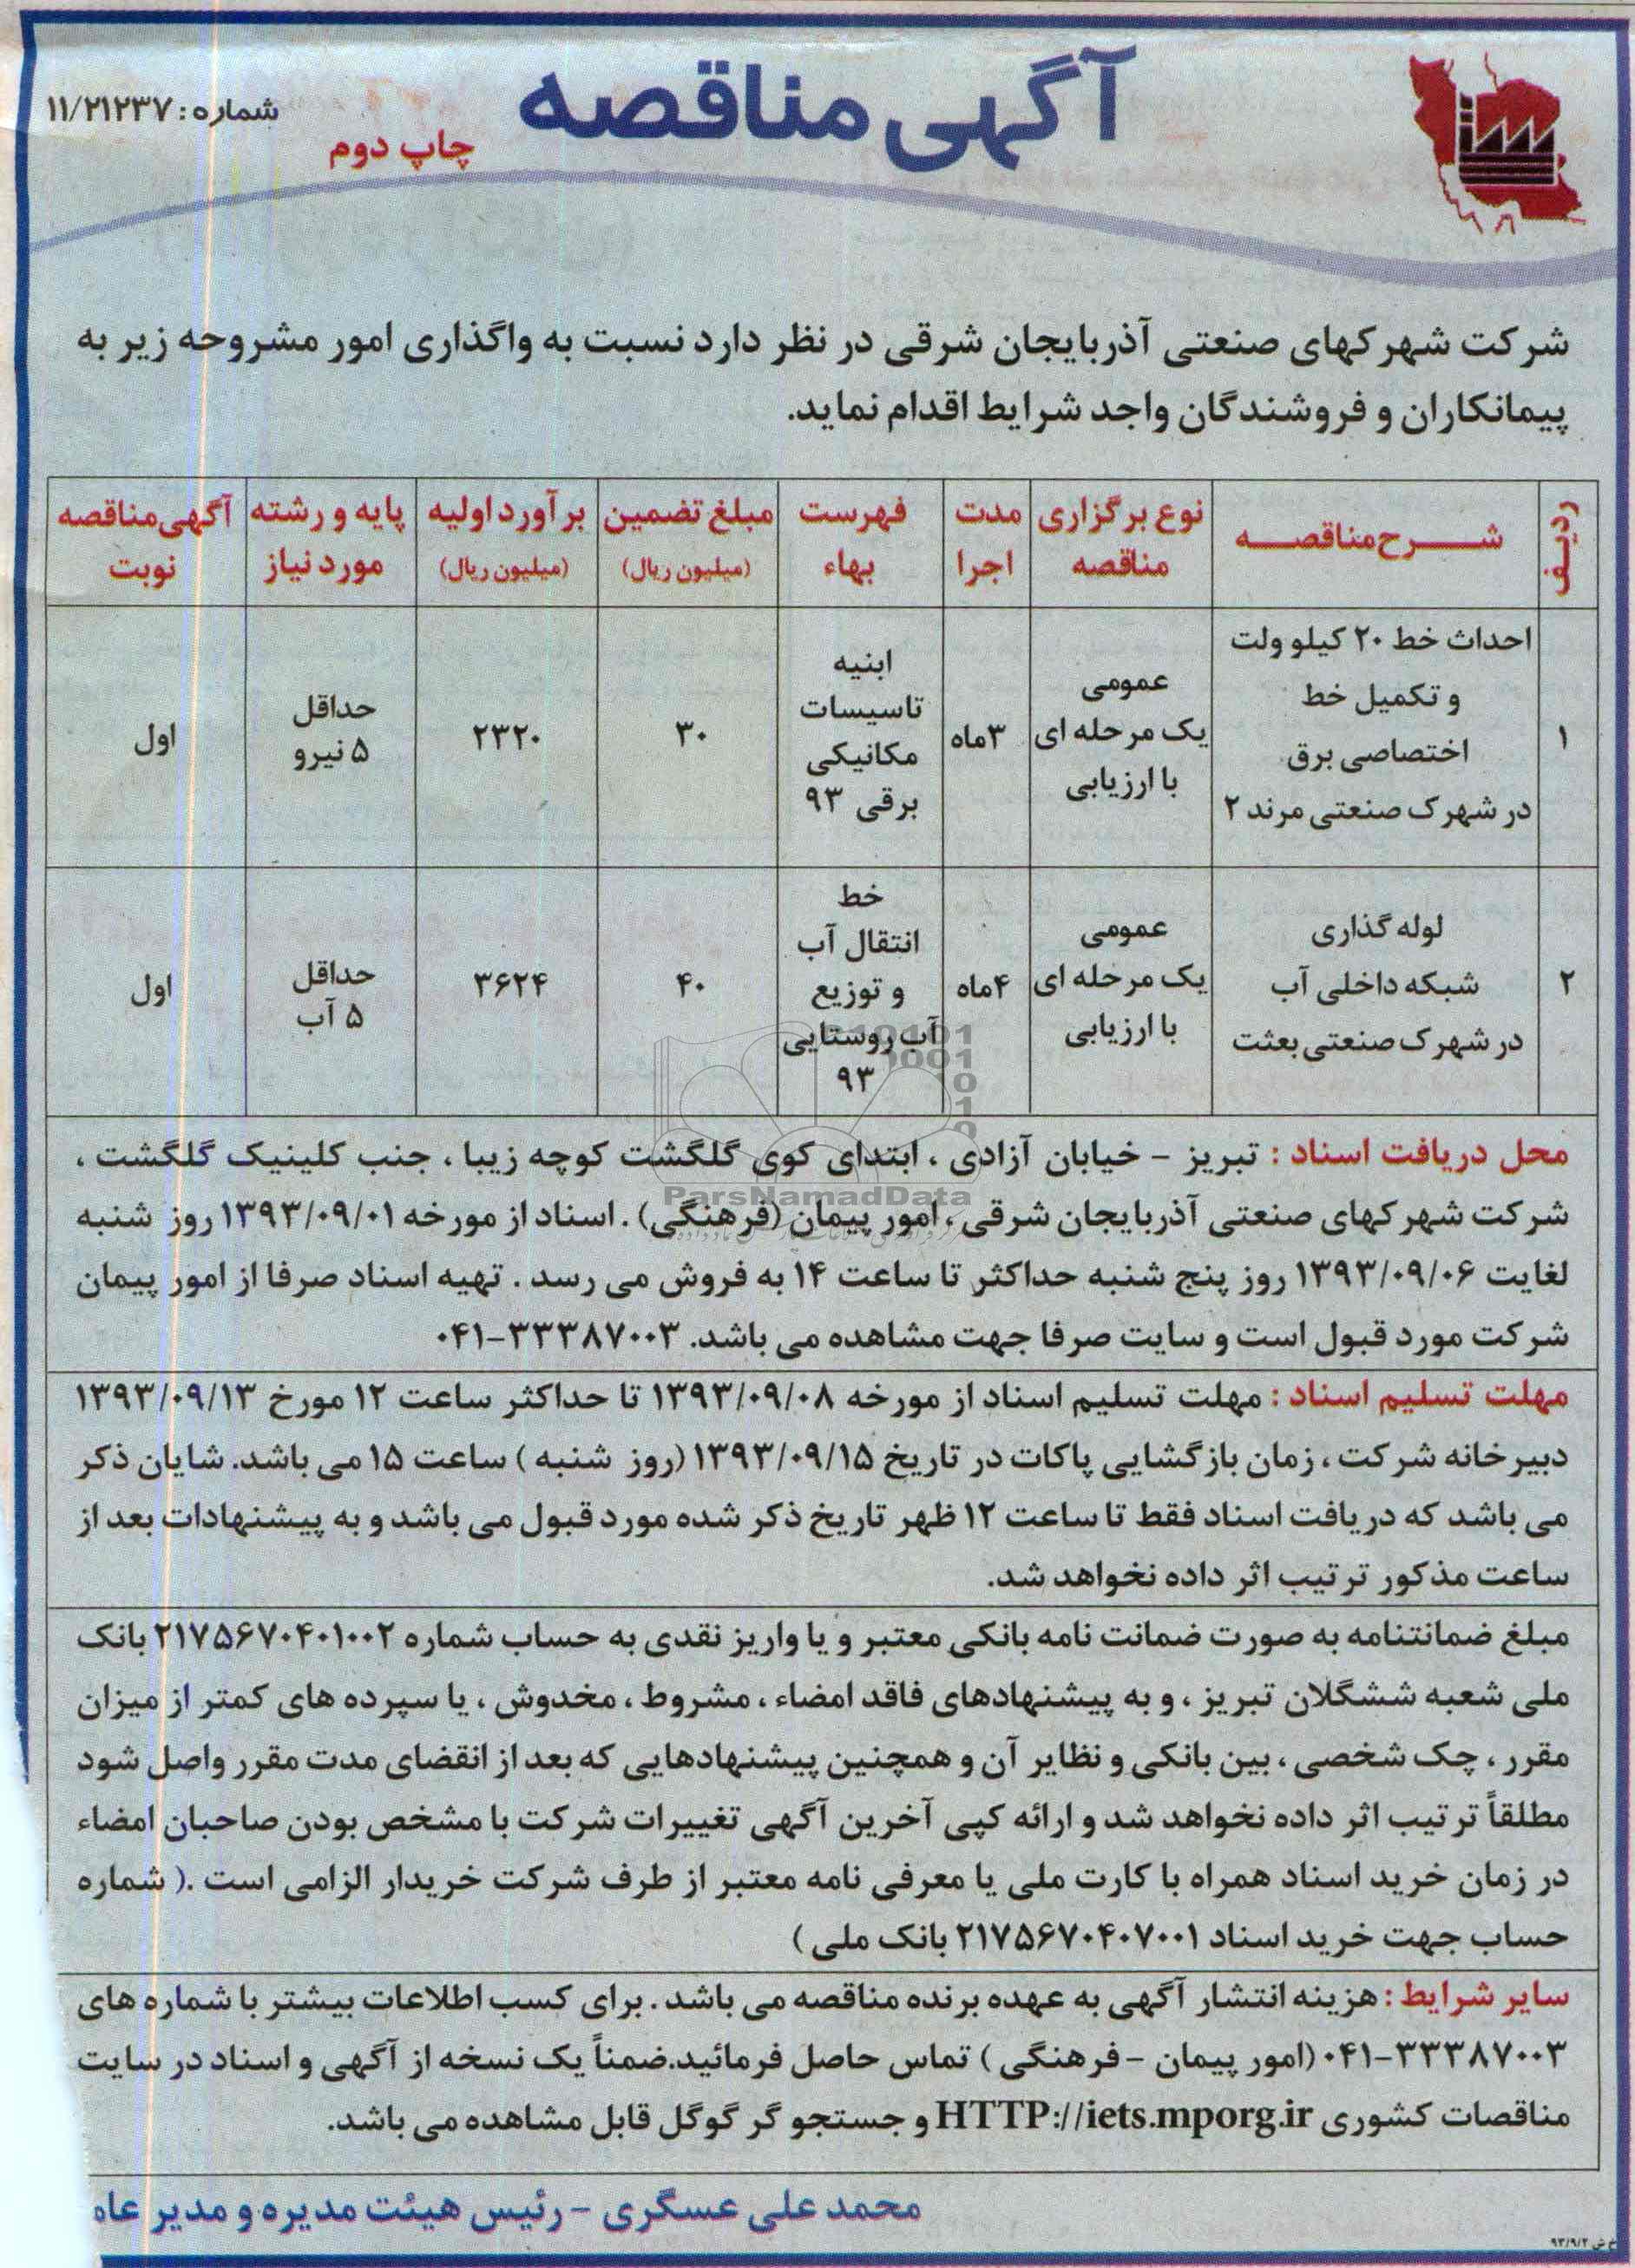 آگهی مناقصه
شماره: ۱۱/۲۱۲۳۷
چاپ دوم
شرکت شهرکهای صنعتی آذربایجان شرقی در نظر دارد نسبت به واگذاری امور مشروحه زیر به
پیمانکاران و فروشندگان واجد شرایط اقدام نماید.
ردیف | شرح مناقصه | نوع برگزاری مناقصه | مدت اجرا | فهرست بهاء | مبلغ تضمین (میلیون ریال) | برآورد اولیه (میلیون ریال) | پایه و رشته مورد نیاز | آگهی مناقصه نوبت
۱ | احداث خط ۲۰ کیلو ولت و تکمیل خط اختصاصی برق در شهرک صنعتی مرند ۲ | عمومی یک مرحله ای با ارزیابی | ۳ماه | ابنیه تاسیسات مکانیکی برقی ۹۳ | ۳۰ | ۲۳۲۰ | حداقل ۵ نیرو | اول
۲ | لوله گذاری شبکه داخلی آب در شهرک صنعتی بعثت | عمومی یک مرحله ای با ارزیابی | ۴ماه | خط انتقال آب و توزیع آب روستایی ۹۳ | ۴۰ | ۳۶۲۴ | حداقل ۵ آب | اول
محل دریافت اسناد : تبریز - خیابان آزادی ، ابتدای کوی گلگشت کوچه زیبا ، جنب کلینیک گلگشت ،
شرکت شهرکهای صنعتی آذربایجان شرقی ، امور پیمان (فرهنگی) . اسناد از مورخه ۱۳۹۳/۰۹/۰۱ روز شنبه
لغایت ۱۳۹۳/۰۹/۰۶ روز پنج شنبه حداکثر تا ساعت ۱۴ به فروش می رسد . تهیه اسناد صرفا از امور پیمان
شرکت مورد قبول است و سایت صرفا جهت مشاهده می باشد. ۳۳۳۸۷۰۰۳-۰۴۱
ParsNamadData
مهلت تسلیم اسناد : مهلت تسلیم اسناد از مورخه ۱۳۹۳/۰۹/۰۸ تا حداکثر ساعت ۱۲ مورخ ۱۳۹۳/۰۹/۱۳
دبیرخانه شرکت ، زمان بازگشایی پاکات در تاریخ ۱۳۹۳/۰۹/۱۵ (روز شنبه ) ساعت ۱۵ می باشد. شایان ذکر
می باشد که دریافت اسناد فقط تا ساعت ۱۲ ظهر تاریخ ذکر شده مورد قبول می باشد و به پیشنهادات بعد از
ساعت مذکور ترتیب اثر داده نخواهد شد.
مبلغ ضمانتنامه به صورت ضمانت نامه بانکی معتبر و یا واریز نقدی به حساب شماره ۲۱۷۵۶۷۰۴۰۱۰۰۲ بانک
ملی شعبه ششگلان تبریز ، و به پیشنهادهای فاقد امضاء ، مشروط ، مخدوش ، یا سپرده های کمتر از میزان
مقرر ، چک شخصی ، بین بانکی و نظایر آن و همچنین پیشنهادهایی که بعد از انقضای مدت مقرر واصل شود
مطلقاً ترتیب اثر داده نخواهد شد و ارائه کپی آخرین آگهی تغییرات شرکت با مشخص بودن صاحبان امضاء
در زمان خرید اسناد همراه با کارت ملی یا معرفی نامه معتبر از طرف شرکت خریدار الزامی است .( شماره
حساب جهت خرید اسناد ۲۱۷۵۶۷۰۴۰۷۰۰۱ بانک ملی )
سایر شرایط : هزینه انتشار آگهی به عهده برنده مناقصه می باشد . برای کسب اطلاعات بیشتر با شماره های
۳۳۳۸۷۰۰۳-۰۴۱ (امور پیمان - فرهنگی ) تماس حاصل فرمائید.ضمناً یک نسخه از آگهی و اسناد در سایت
مناقصات کشوری HTTP://iets.mporg.ir و جستجو گر گوگل قابل مشاهده می باشد.
محمد علی عسگری - رئیس هیئت مدیره و مدیر عام
خ ش ۹۳/۹/۲